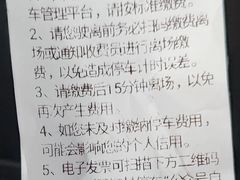 车管理平台，请按标准缴费。
2、请您驶离前务必扫码缴费离
场或通知收费员进行离场缴
费，以免造成停车计时误差。
3、请缴费后15分钟离场，以免
再次产生费用。
4、如您未及时缴纳停车费用，
可能会影响您的个人信用。
5、电子发票可扫描下方二维码